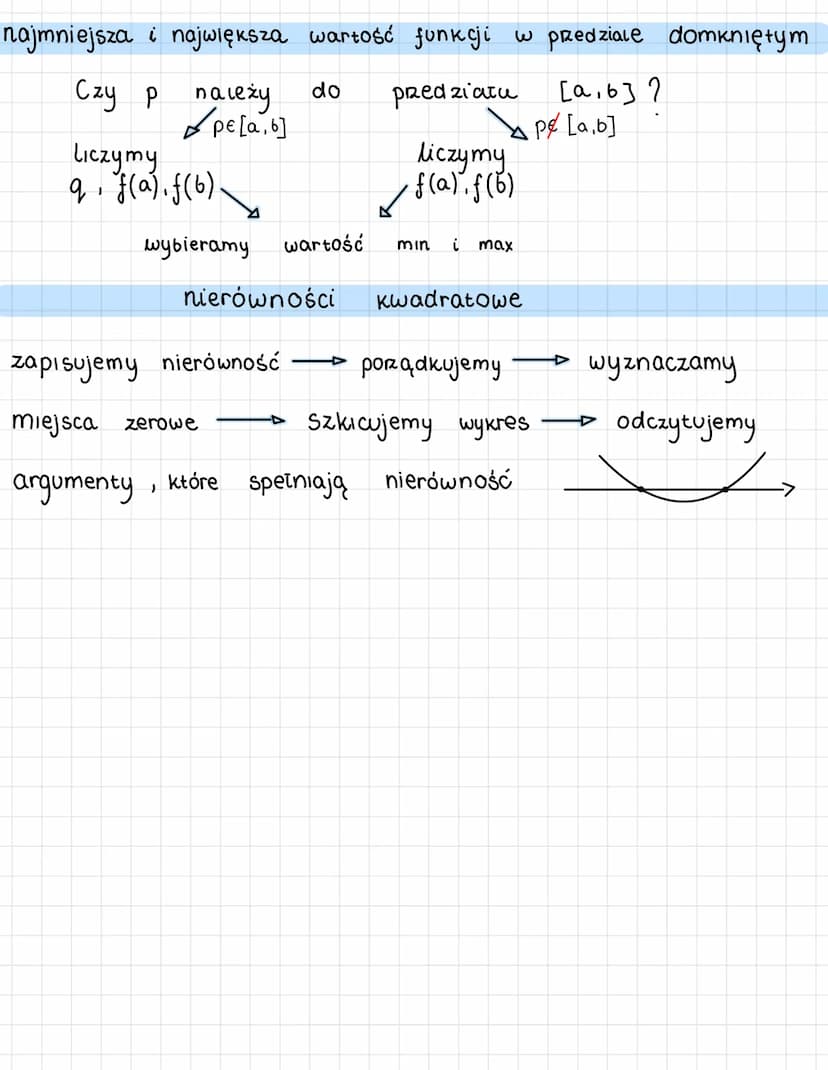 najmniejsza i największa wartość funkcji w przedziale domkniętym
Czy p należy do przedziału [a,b]?
p∈[a,b] p∉[a,b]
liczymy liczymy
q, f(a), f(b) f(a), f(b)
wybieramy wartość min i max
nierówności kwadratowe
zapisujemy nierówność → porządkujemy → wyznaczamy
miejsca zerowe → szkicujemy wykres → odczytujemy
argumenty, które spełniają nierówność